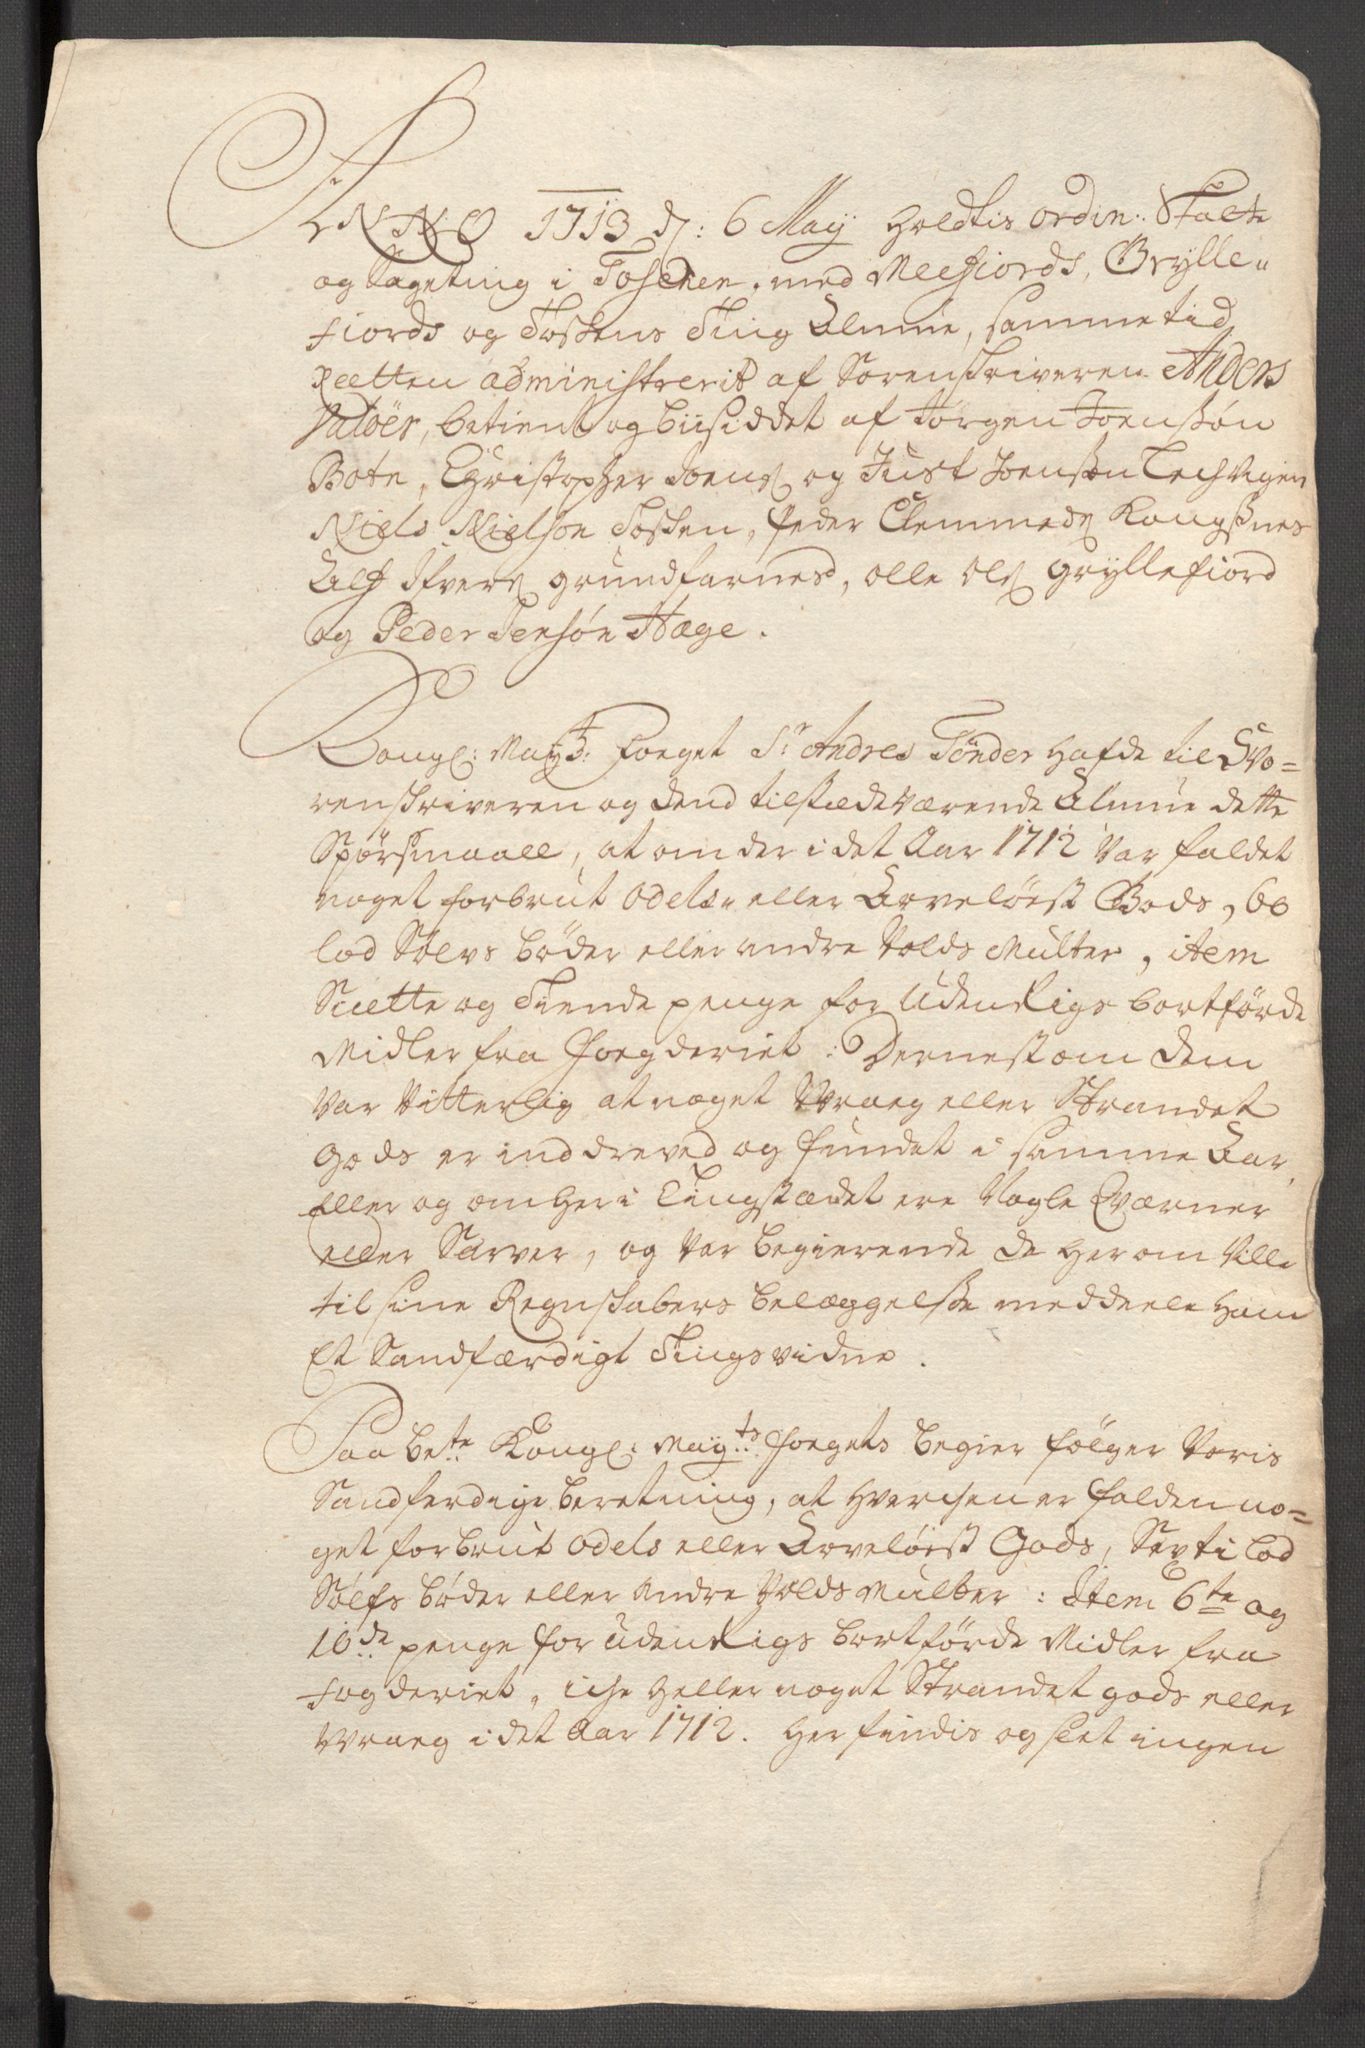 ANNO 1713 d: 6 Maij Holdtis ordin: Skatte
og Sageting i Toschen, med Meefiords, Grylle-
fiords og Toskens Ting Almue, samme tid
Retten administrerit af Sorenskriveren Anders
Valöer, betient og biisiddet af Jørgen Joensøn
Botn, Christopher Joens og Just Joensøn Lechvigen
Niels Nielsøn Tosken, Peder Clemmeds Kongsnes
Alf Ifvers grundfarnes, olle Ols gryllefiord
og Peder Jensøn Hæge.
Kongl: Mayts: Foeget Sr Andres Tønder Hafde til So-
renskriveren og dend tilstædeværende Almue dette
Spørsmaall, at om der i det Aar 1712 Var faldet
noget forbrut Odels eller Arveløest Gods, 60
lod Sølvs bøder eller andre Volds Mulkter, item
Siette og Tiende penge for Udenrigs bortførde
Midler fra Foegderiet: Dernest om dem
Var Vitterlig at noget Wraeg eller Strandet
Gods er inddreved og fundet i samme Aar,
Eller og om her i Tingstædet ere Nogle Qværner
eller Saver, og Var begierende de her om Ville
til sine Regnskabers belæggelse meddeele Ham
Et Sandfærdigt Tings vidne.
Paa bete Kongl: Mayts: Foegets begier følger Voris
Sandferdige beretning, at Hverchen er falden no-
get forbrut odels eller Arveløest Gods, Sexti lod
Sølfs bøder eller Andre Volds Mulkter: Item 6te og
10de penge for udenrigs bortførde Midler fra
fogderiet, iche heller noget Strandet gods eller
Wraeg i det Aar 1712. Her findis og slet ingen